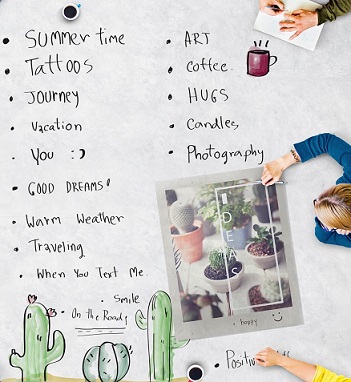 • Summer time
• Tattoos
• Journey
• Vacation
• You :)
• GOOD DREAMS!
• Warm Weather
• Traveling
• When You Text Me.
• Smile
• On the Road!
• ART
• Coffee.
• HUGS
• Candles
• Photography
IDEAS
• happy